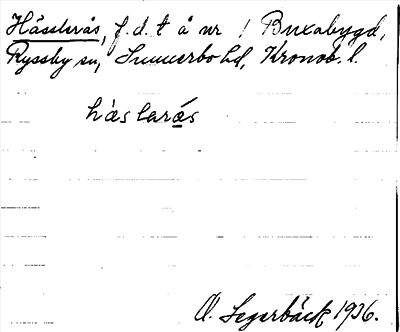 Hässlerås, f.d. t å nr 1 Buxabygd,
Ryssby sn, Sunnerbo hd, Kronob. l.
hàslarás
O. Segerbäck 1936.